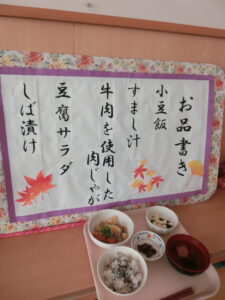 お品書き
小豆飯
すまし汁
牛肉を使用した
肉じゃが
豆腐サラダ
しば漬け